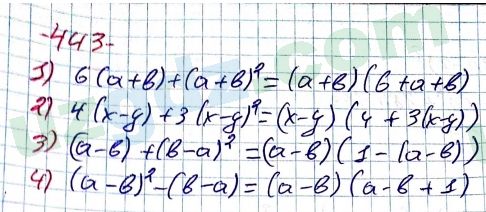 -443-
1) 6(a+в)+(a+в)²=(a+в)(6+a+в)
2) 4(x-y)+3(x-y)²=(x-y)(4+3(x-y))
3) (a-в)+(в-a)²=(a-в)(1-(a-в))
4) (a-в)²-(в-a)=(a-в)(a-в+1)